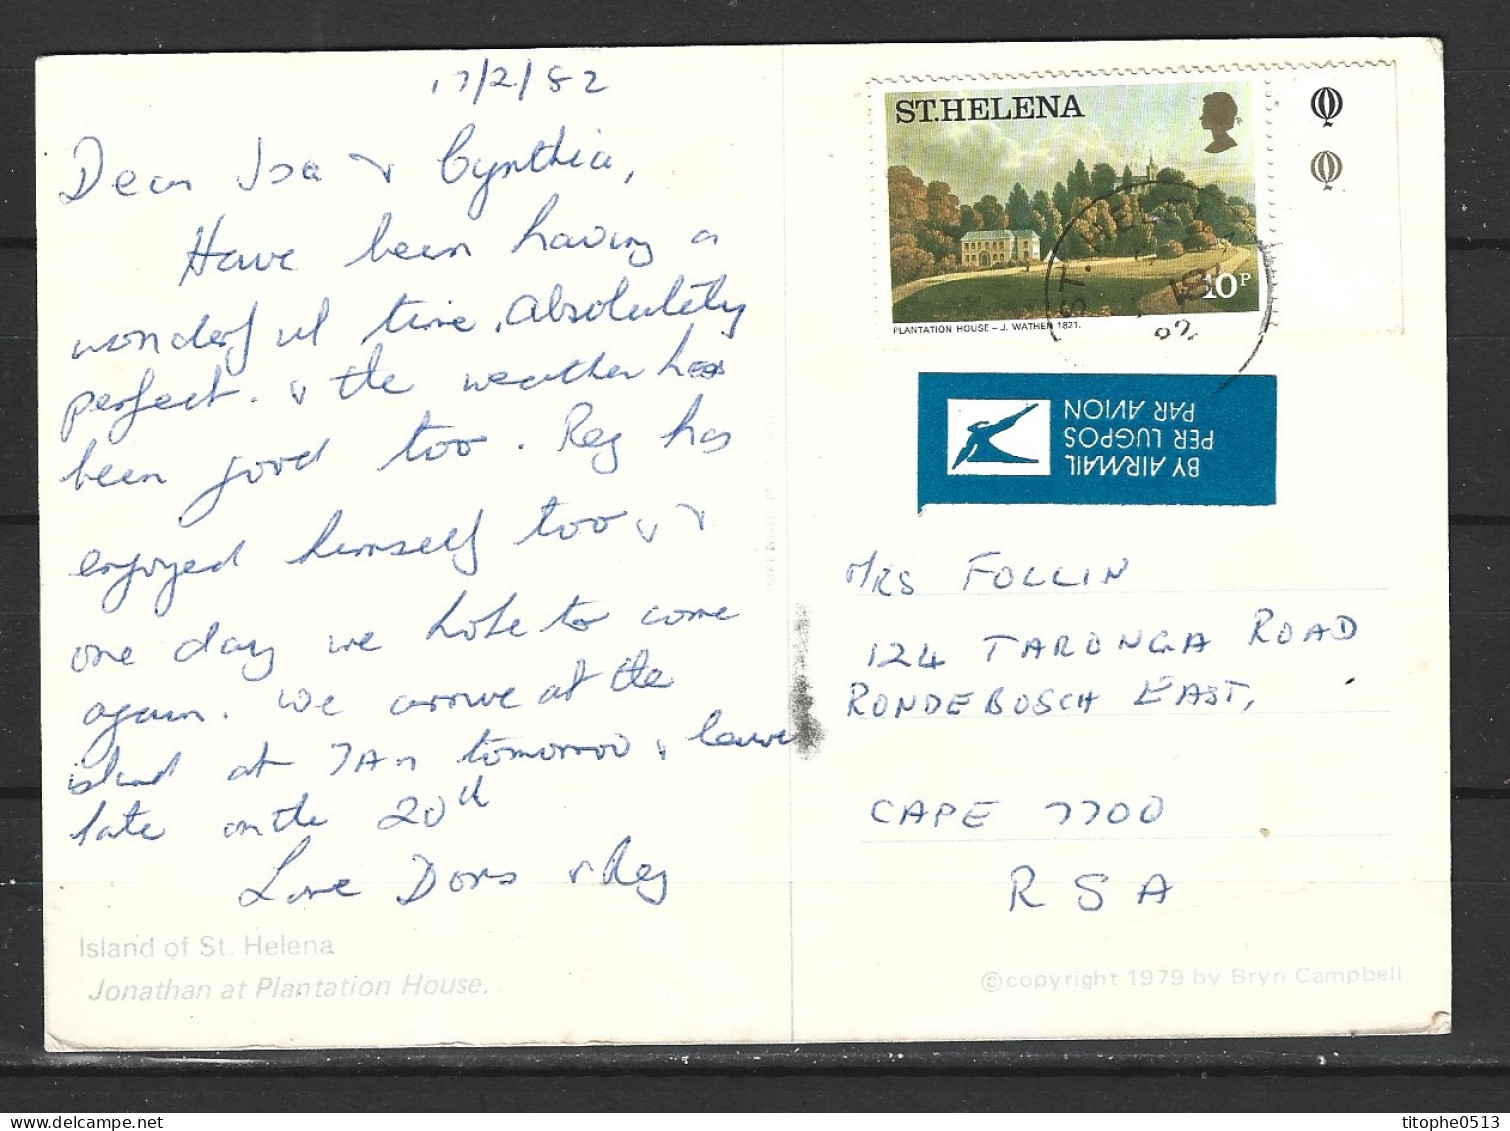 17/2/82
Dear Isa & Cynthia,
Have been having a
wonderful time, absolutely
perfect. & the weather has
been good too. Reg has
enjoyed himself too, &
one day we hope to come
again. We arrive at the
island at 7AM tomorroo & leave
late on the 20th
Love Doris & Reg
Island of St. Helena
Jonathan at Plantation House.
ST.HELENA
10P
PLANTATION HOUSE – J. WATHEN 1821.
ST. HELENA
82
BY AIRMAIL
PER LUGPOS
PAR AVION
MRS FOLLIN
124 TARONGA ROAD
RONDEBOSCH EAST,
CAPE 7700
RSA
©copyright 1979 by Bryn Campbell
titophe0513